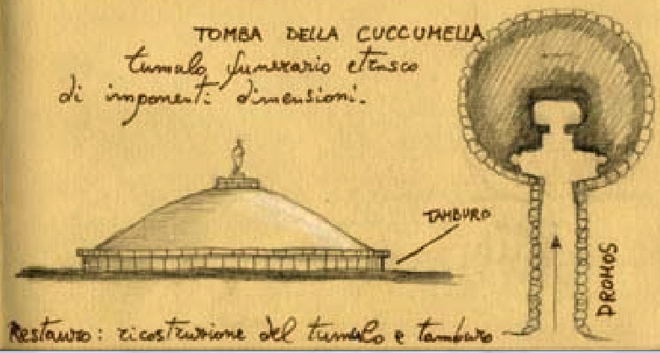 TOMBA DELLA CUCCUMELLA
tumulo funerario etrusco
di imponenti dimensioni.
TAMBURO
DROMOS
Restauro: ricostruzione del tumulo e tamburo